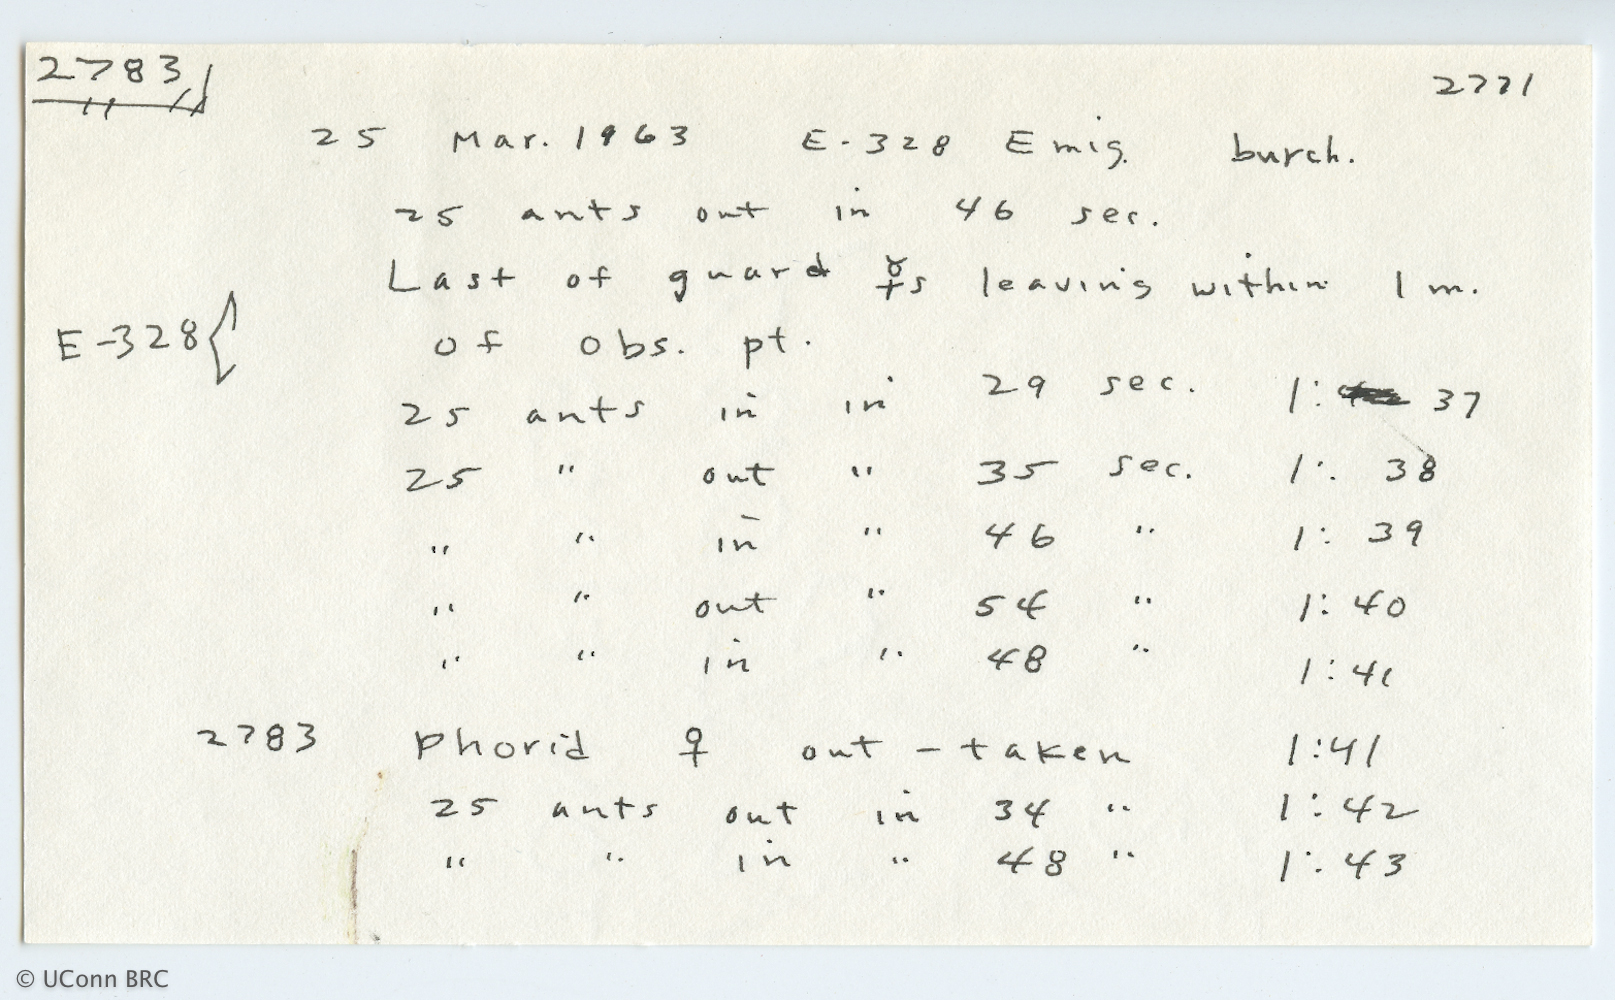 2783
2771
25 Mar. 1963 E-328 Emig. burch.
25 ants out in 46 sec.
Last of guard ☿s leaving within 1 m.
E-328 { of obs. pt.
25 ants in in 29 sec. 1: 37
25 " out " 35 sec. 1: 38
" " in " 46 " 1: 39
" " out " 54 " 1: 40
" " in " 48 " 1:41
2783 Phorid ♀ out - taken 1:41
25 ants out in 34 " 1:42
" " in " 48 " 1:43
© UConn BRC